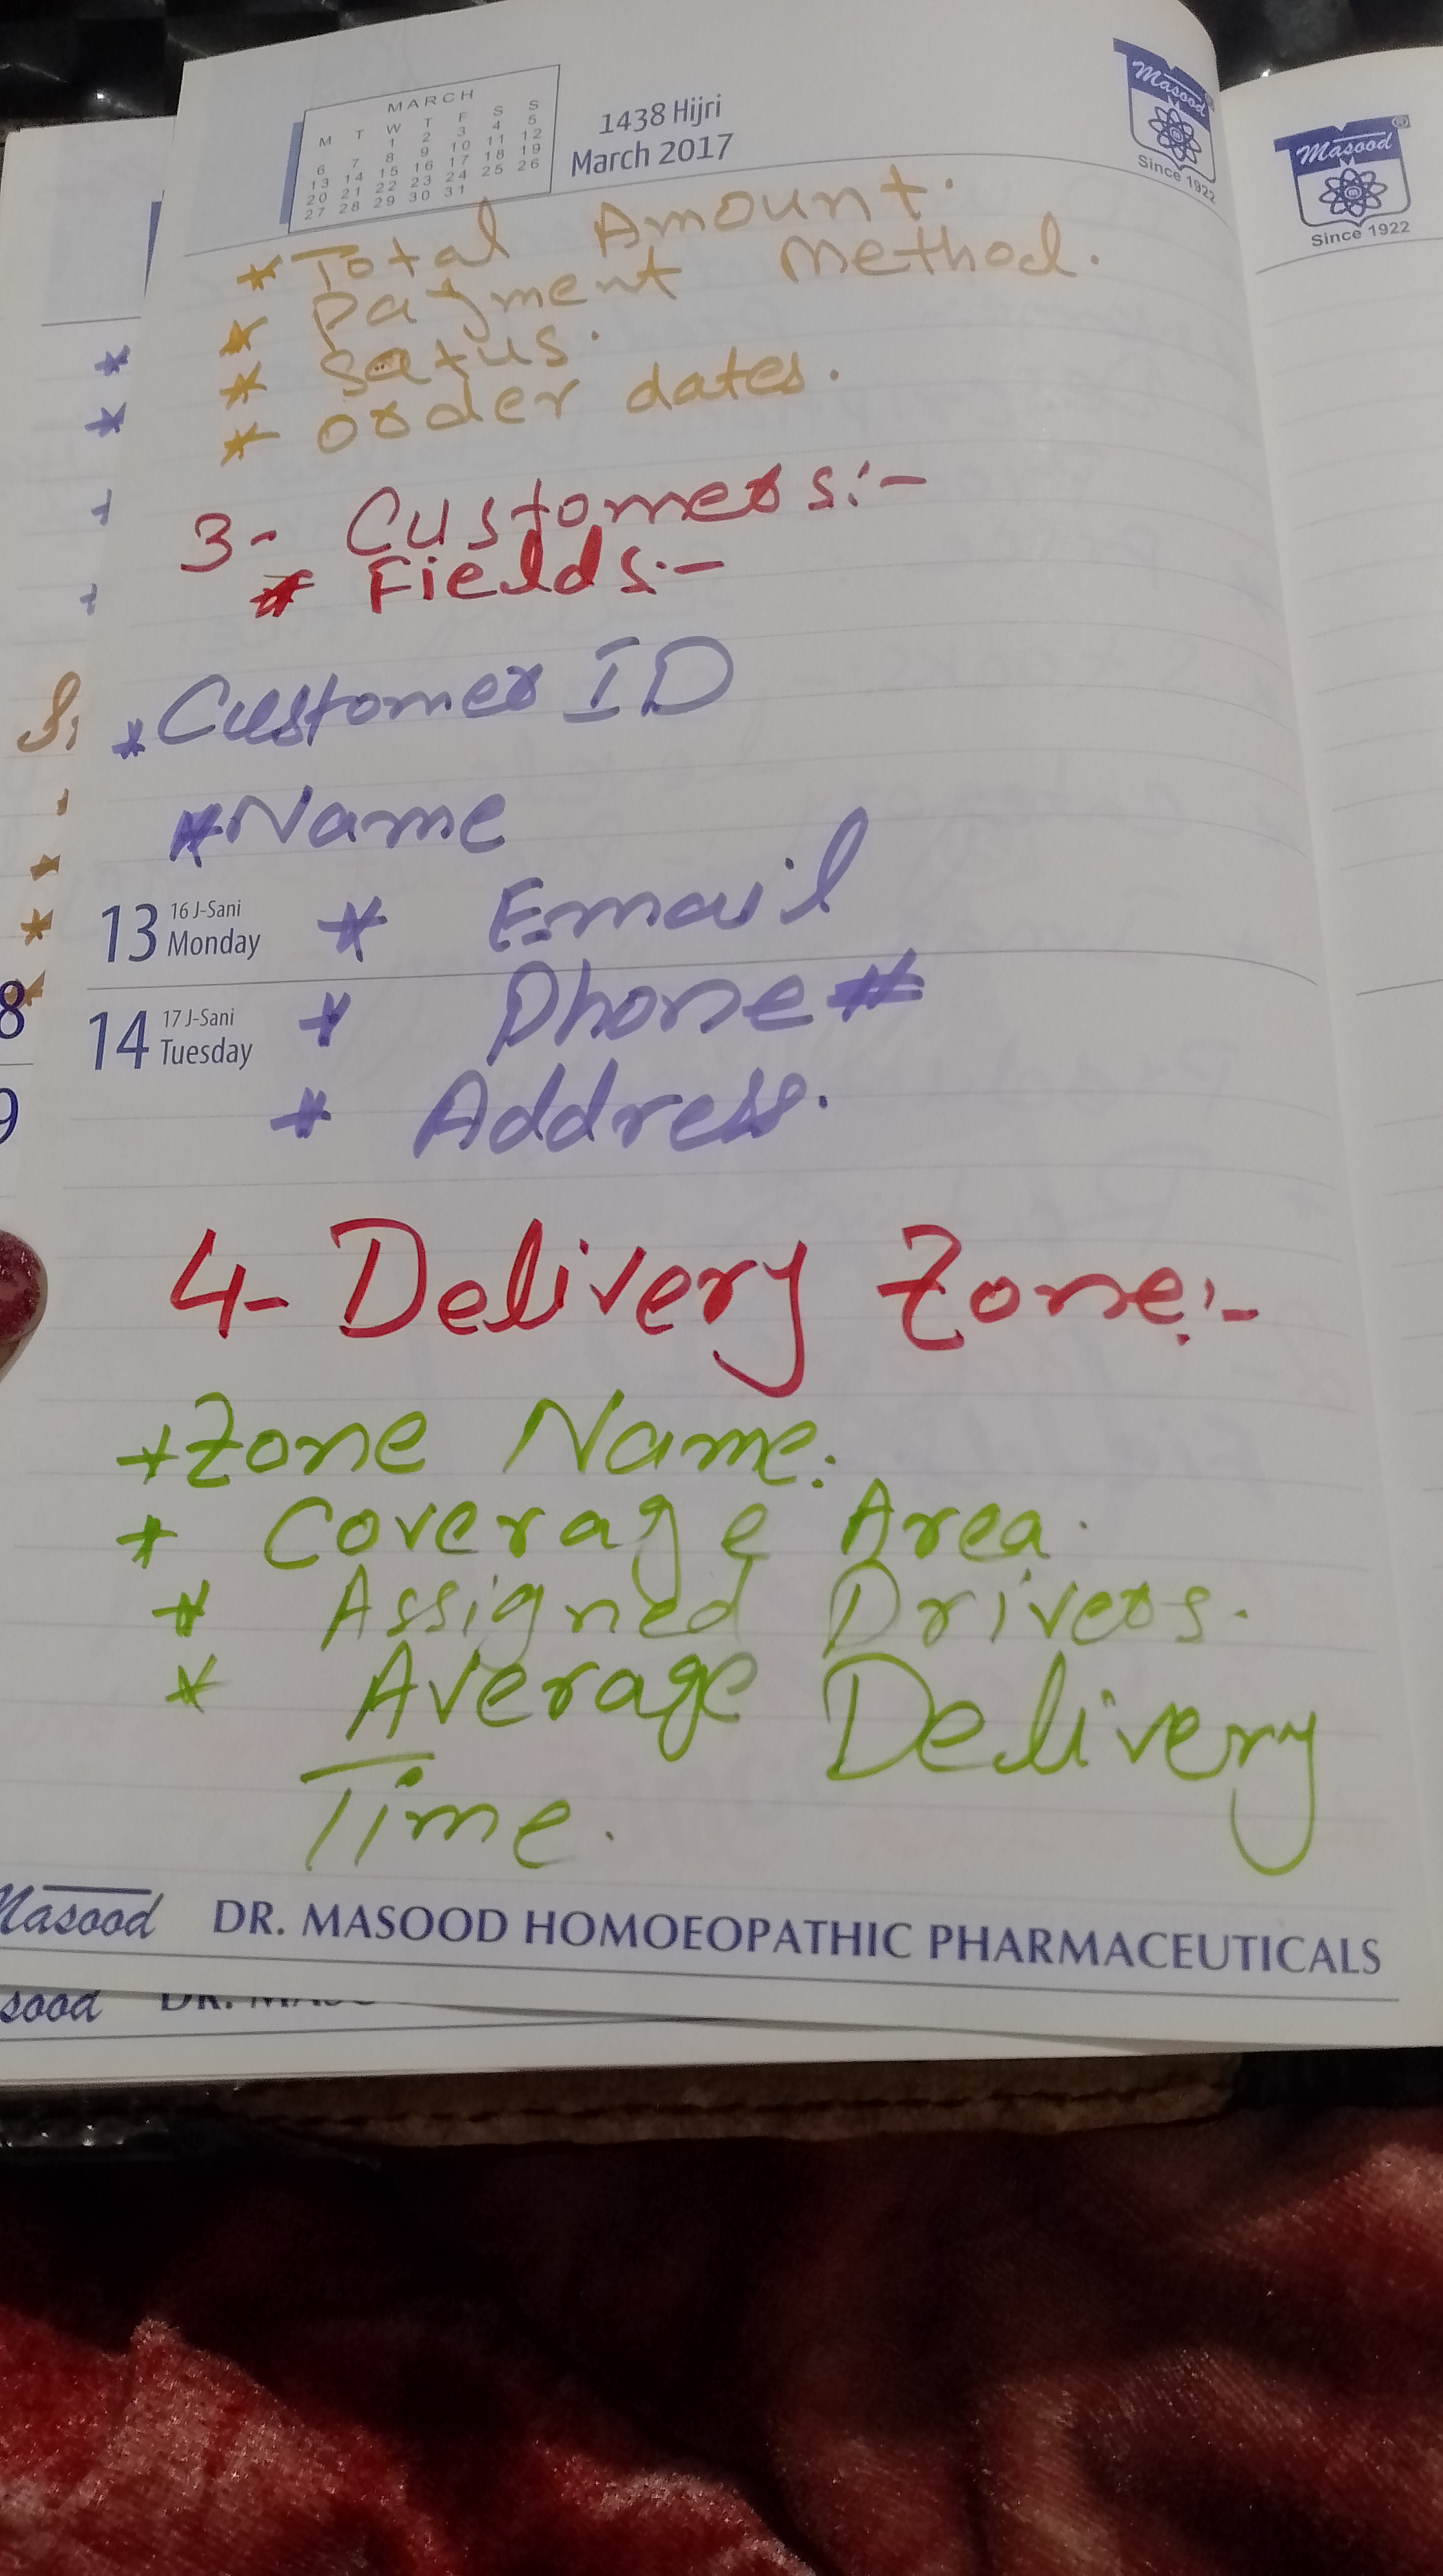 MARCH
M T W T F S S
1 2 3 4 5
6 7 8 9 10 11 12
13 14 15 16 17 18 19
20 21 22 23 24 25 26
27 28 29 30 31
1438 Hijri
March 2017
Masood
Since 1922
Masood
Since 1922
* Total Amount.
* Payment Method.
* Satus.
* Order dates.
3- Customers:-
* Fields:-
* Customer ID
* Name
13 16 J-Sani Monday
* Email
14 17 J-Sani Tuesday
* Phone #
* Address.
4- Delivery Zone:-
* Zone Name.
* Coverage Area.
* Assigned Drivers.
* Average Delivery
Time.
Masood DR. MASOOD HOMOEOPATHIC PHARMACEUTICALS
8
9
sood